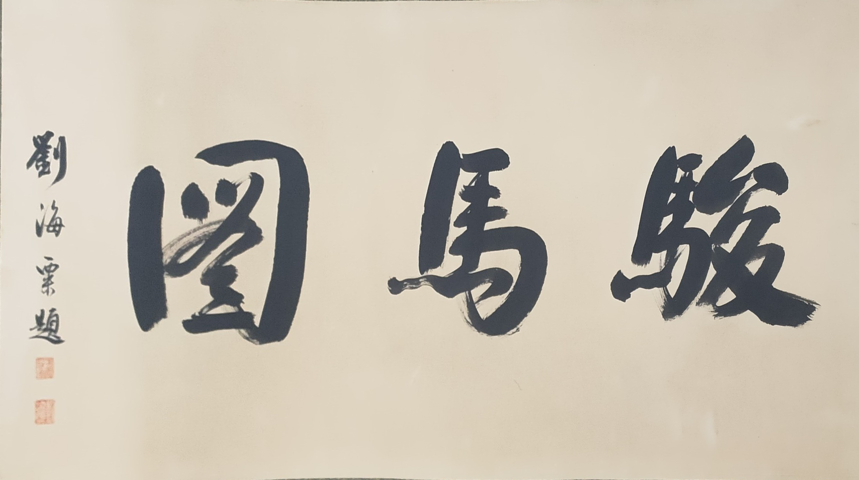 駿馬圖
劉海粟題